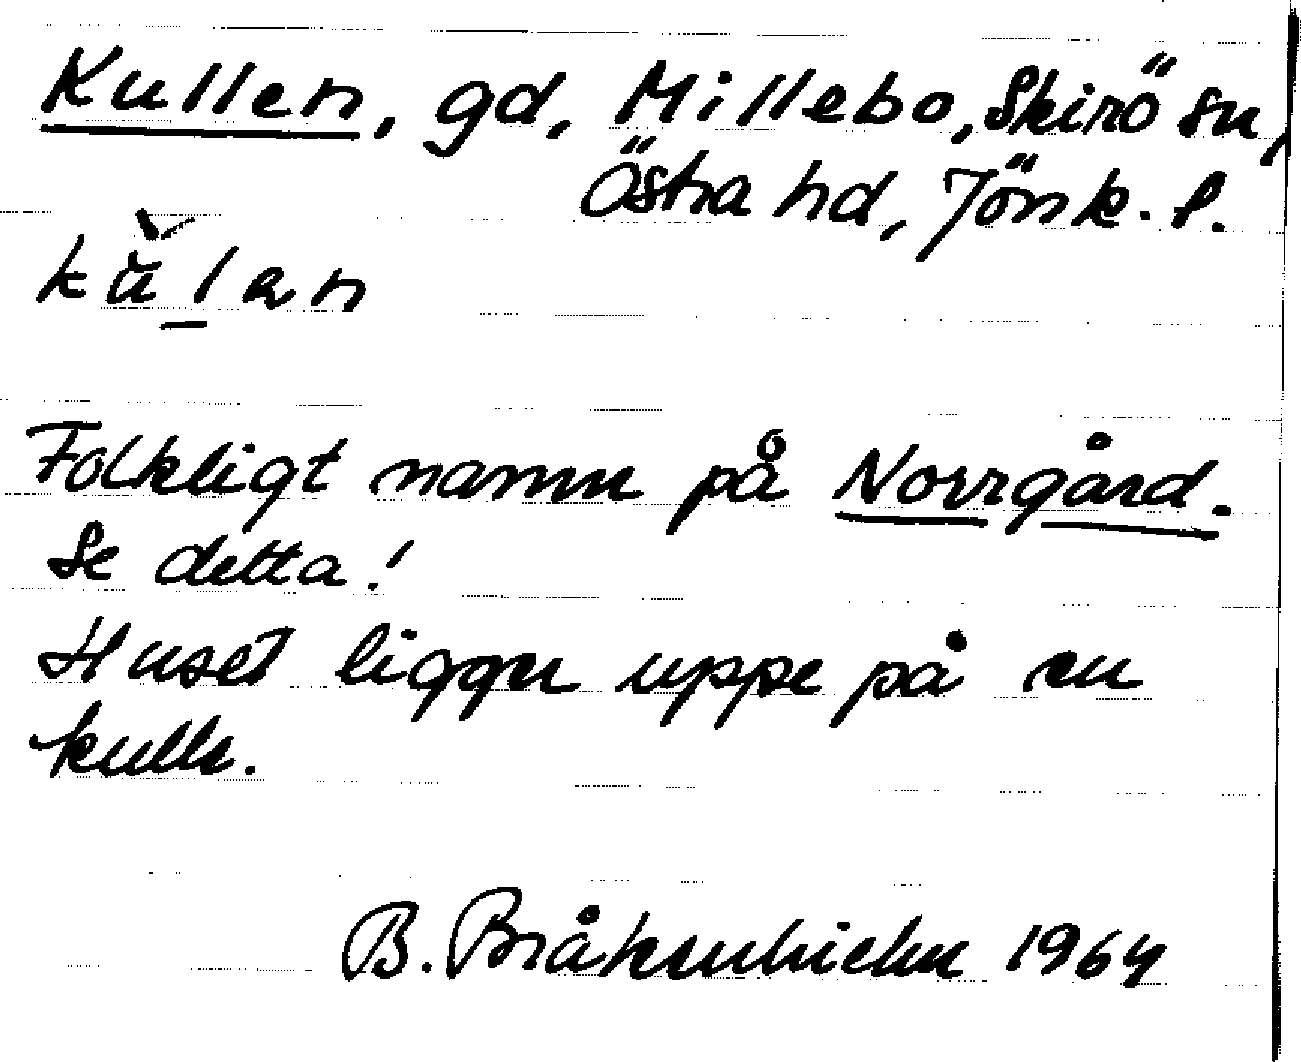 Kullen, gd, Millebo, Skirö sn,
Östra hd, Jönk. l.
kŭ̀lan
Folkligt namn på Norrgård.
Se detta!
Huset ligger uppe på en
kulle.
B. 1964